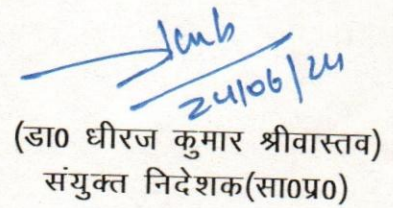 24/06/24
(डा0 धीरज कुमार श्रीवास्तव)
संयुक्त निदेशक(सा0प्र0)